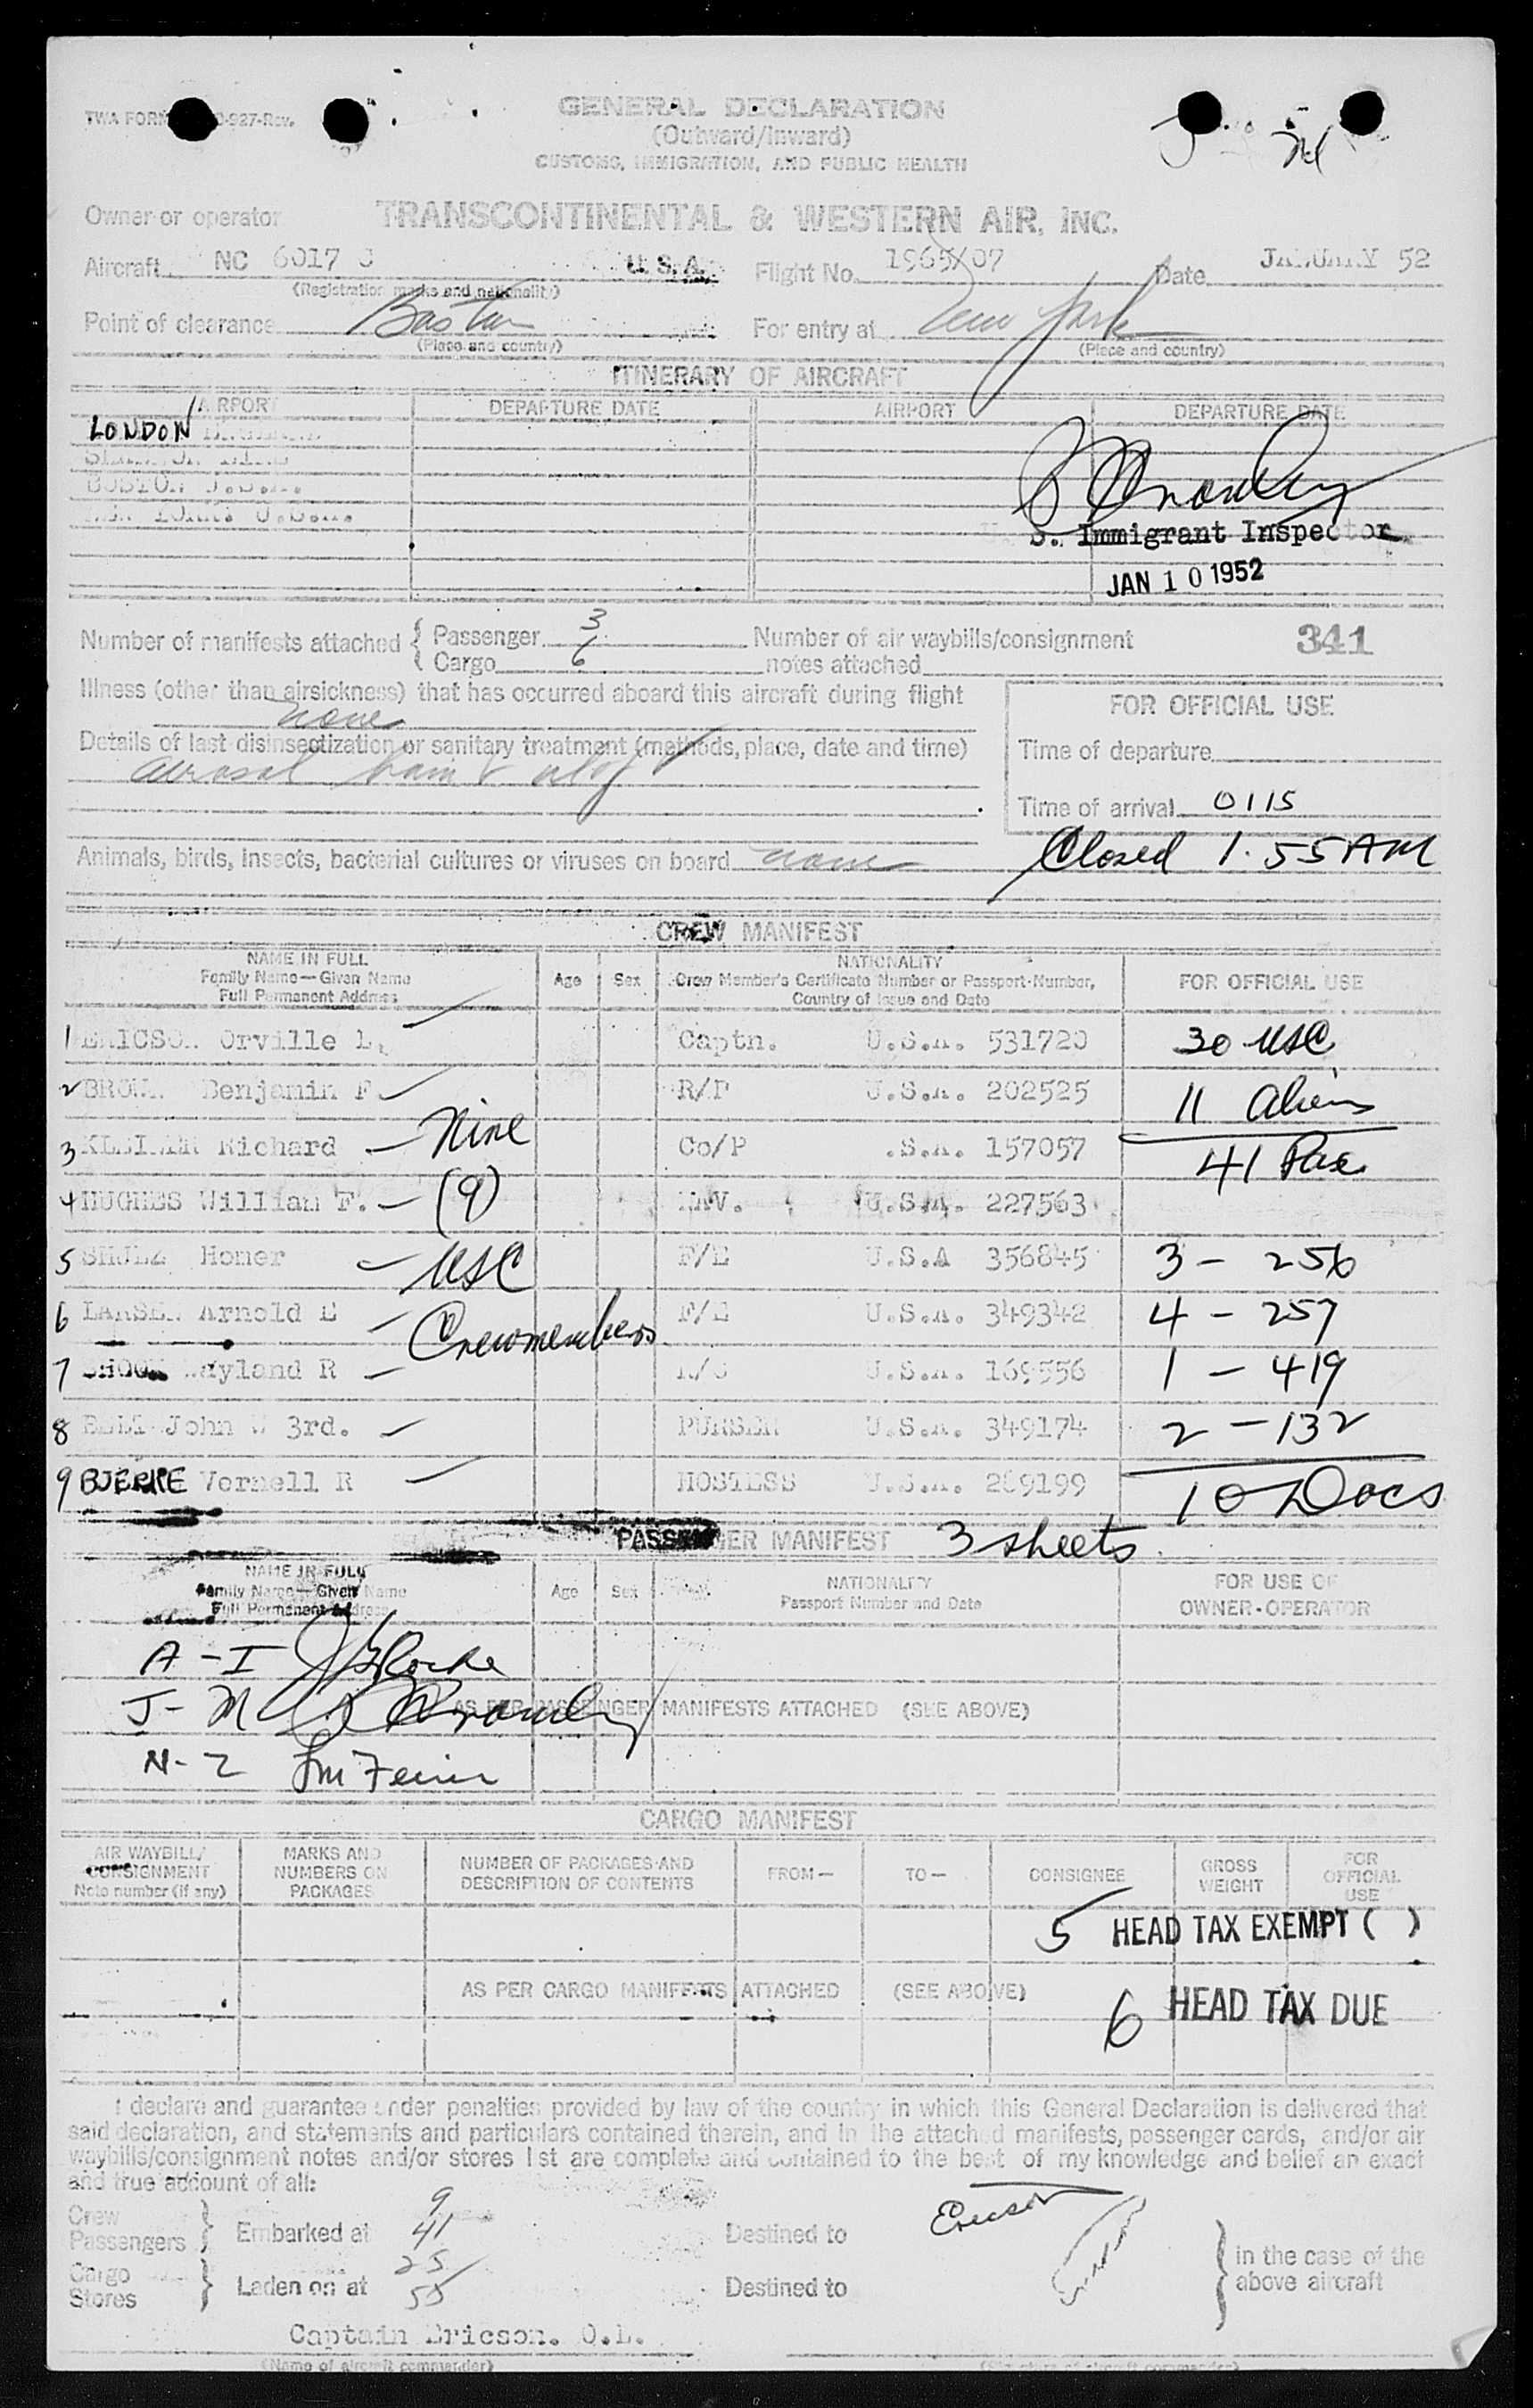 GENERAL DECLARATION
TWA FORM 0-927-Rev.
(Outward/Inward)
CUSTOMS, IMMIGRATION, AND PUBLIC HEALTH
Owner or operator TRANSCONTINENTAL & WESTERN AIR, INC.
Aircraft NC 6017 U.S.A. Flight No. Date JANUARY 52
(Registration marks and nationality)
Point of clearance Boston For entry at New York
(Place and country) (Place and country)
ITINERARY OF AIRCRAFT
AIRPORT DEPARTURE DATE AIRPORT DEPARTURE DATE
LONDON
BOSTON U.S.A.
NEW YORK U.S.A.
S. Immigrant Inspector
JAN 10 1952
Number of manifests attached { Passenger 3 Number of air waybills/consignment 341
{ Cargo 6 notes attached
Illness (other than airsickness) that has occurred aboard this aircraft during flight
none
FOR OFFICIAL USE
Details of last disinsectization or sanitary treatment (methods, place, date and time)
aerosol
Time of departure
Time of arrival 0115
Closed 1.55 AM
Animals, birds, insects, bacterial cultures or viruses on board none
CREW MANIFEST
NAME IN FULL
Family Name—Given Name
Full Permanent Address
Age Sex
NATIONALITY
Crew Member's Certificate Number or Passport Number,
Country of Issue and Date
FOR OFFICIAL USE
1 ERICSON Orville L. Captn. U.S.A. 531720 30 USC
2 BROWN Benjamin F U.S.A. 202525 11 Aliens
3 Richard — Nine Co/P .S.A. 157057 41 Pax
4 HUGHES William F. — (9) NAV. U.S.A. 227563
5 Homer — USC F/E U.S.A 356845 3 - 256
6 LARSEN Arnold E — Crewmembers F/E U.S.A. 349342 4 - 257
7 Wayland R — U.S.A. 169556 1 - 419
8 John W 3rd. — PURSER U.S.A. 349174 2 - 132
9 BJERKE Vornell R — HOSTESS U.S.A. 269199 10 Docs
PASSENGER MANIFEST 3 sheets
NAME IN FULL
Family Name—Given Name
Full Permanent Address
Age Sex
NATIONALITY
Passport Number and Date
FOR USE OF
OWNER-OPERATOR
A - I
J - M
AS PER PASSENGER MANIFESTS ATTACHED (SEE ABOVE)
N - Z
CARGO MANIFEST
AIR WAYBILL/
CONSIGNMENT
Note number (if any)
MARKS AND
NUMBERS ON
PACKAGES
NUMBER OF PACKAGES AND
DESCRIPTION OF CONTENTS
FROM— TO— CONSIGNEE
GROSS
WEIGHT
FOR
OFFICIAL
USE
5 HEAD TAX EXEMPT ( )
AS PER CARGO MANIFESTS ATTACHED (SEE ABOVE)
6 HEAD TAX DUE
I declare and guarantee under penalties provided by law of the country in which this General Declaration is delivered that
said declaration, and statements and particulars contained therein, and in the attached manifests, passenger cards, and/or air
waybills/consignment notes and/or stores list are complete and contained to the best of my knowledge and belief an exact
and true account of all:
Crew 9
Passengers } Embarked at 41 Destined to Ericson
Cargo 25
Stores } Laden on at 55 Destined to
} in the case of the
above aircraft
Captain Ericson. O.L.
(Name of aircraft commander) (Signature of aircraft commander)